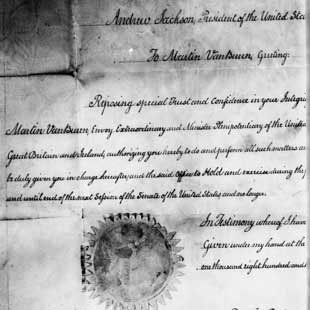 Andrew Jackson, President of the United Sta
To Martin VanBuren, Greeting:
Reposing special Trust and Confidence in your Integri
Martin VanBuren, Envoy Extraordinary and Minister Plenipotentiary of the United
Great Britain and Ireland, authorizing you hereby to do and perform all such matters an
be duly given you in charge hereafter, and the said Office to Hold and exercise during the p
and until end of the next Session of the Senate of the United States, and no longer.
In Testimony whereof I hav
Given under my hand at the
one thousand eight hundred and